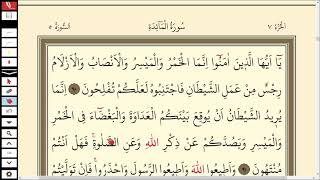 الجزء ٧ سورة المائدة السورة ٥
يَا أَيُّهَا الَّذِينَ اٰمَنُوا إِنَّمَا الْخَمْرُ وَالْمَيْسِرُ وَالْأَنْصَابُ وَالْأَزْلَامُ
رِجْسٌ مِنْ عَمَلِ الشَّيْطَانِ فَاجْتَنِبُوهُ لَعَلَّكُمْ تُفْلِحُونَ ٩٠ إِنَّمَا
يُرِيدُ الشَّيْطَانُ أَنْ يُوقِعَ بَيْنَكُمُ الْعَدَاوَةَ وَالْبَغْضَاءَ فِي الْخَمْرِ
وَالْمَيْسِرِ وَيَصُدَّكُمْ عَنْ ذِكْرِ اللهِ وَعَنِ الصَّلٰوةِ فَهَلْ أَنْتُمْ
مُنْتَهُونَ ٩١ وَأَطِيعُوا اللهَ وَأَطِيعُوا الرَّسُولَ وَاحْذَرُوا فَإِنْ تَوَلَّيْتُمْ